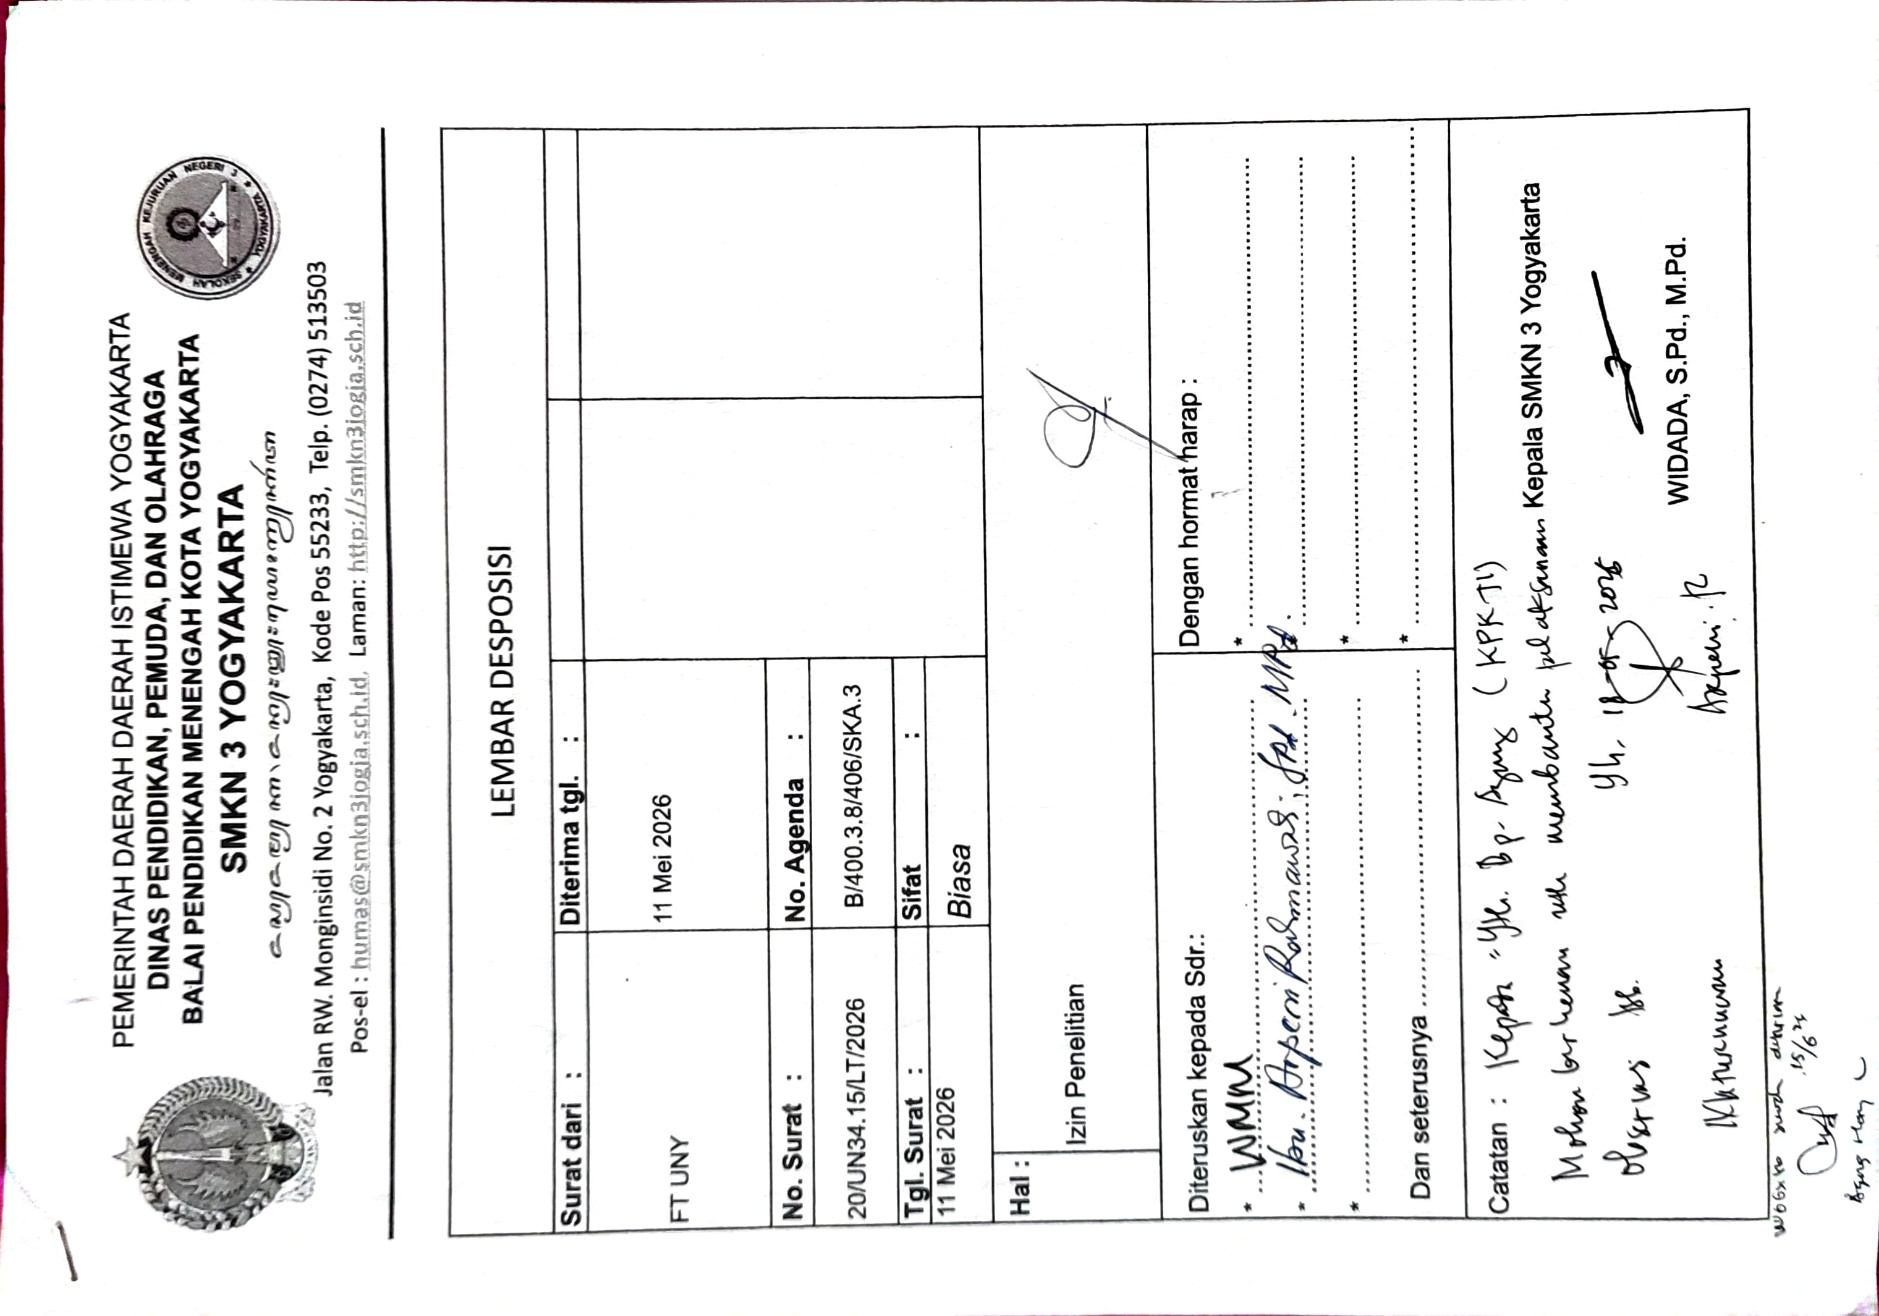 PEMERINTAH DAERAH DAERAH ISTIMEWA YOGYAKARTA
DINAS PENDIDIKAN, PEMUDA, DAN OLAHRAGA
BALAI PENDIDIKAN MENENGAH KOTA YOGYAKARTA
SMKN 3 YOGYAKARTA
Jalan RW. Monginsidi No. 2 Yogyakarta, Kode Pos 55233, Telp. (0274) 513503
Pos-el : humas@smkn3jogja.sch.id, Laman: http://smkn3jogja.sch.id
SEKOLAH MENENGAH KEJURUAN NEGERI 3
YOGYAKARTA
LEMBAR DESPOSISI
Surat dari :
Diterima tgl. :
FT UNY
11 Mei 2026
No. Surat :
No. Agenda :
20/UN34.15/LT/2026
B/400.3.8/406/SKA.3
Tgl. Surat :
Sifat :
11 Mei 2026
Biasa
Hal :
Izin Penelitian
Diteruskan kepada Sdr.:
Dengan hormat harap :
* WMM
*
* Ibu. Arpeni Rahmawati, SPd. MPd.
*
*
*
Dan seterusnya
*
Catatan : Kepada Yth. Bp. Agung (KPKTJ)
Mohon membantu pelaksanaan
Kepala SMKN 3 Yogyakarta
WIDADA, S.Pd., M.Pd.
sudah diterima
15/6